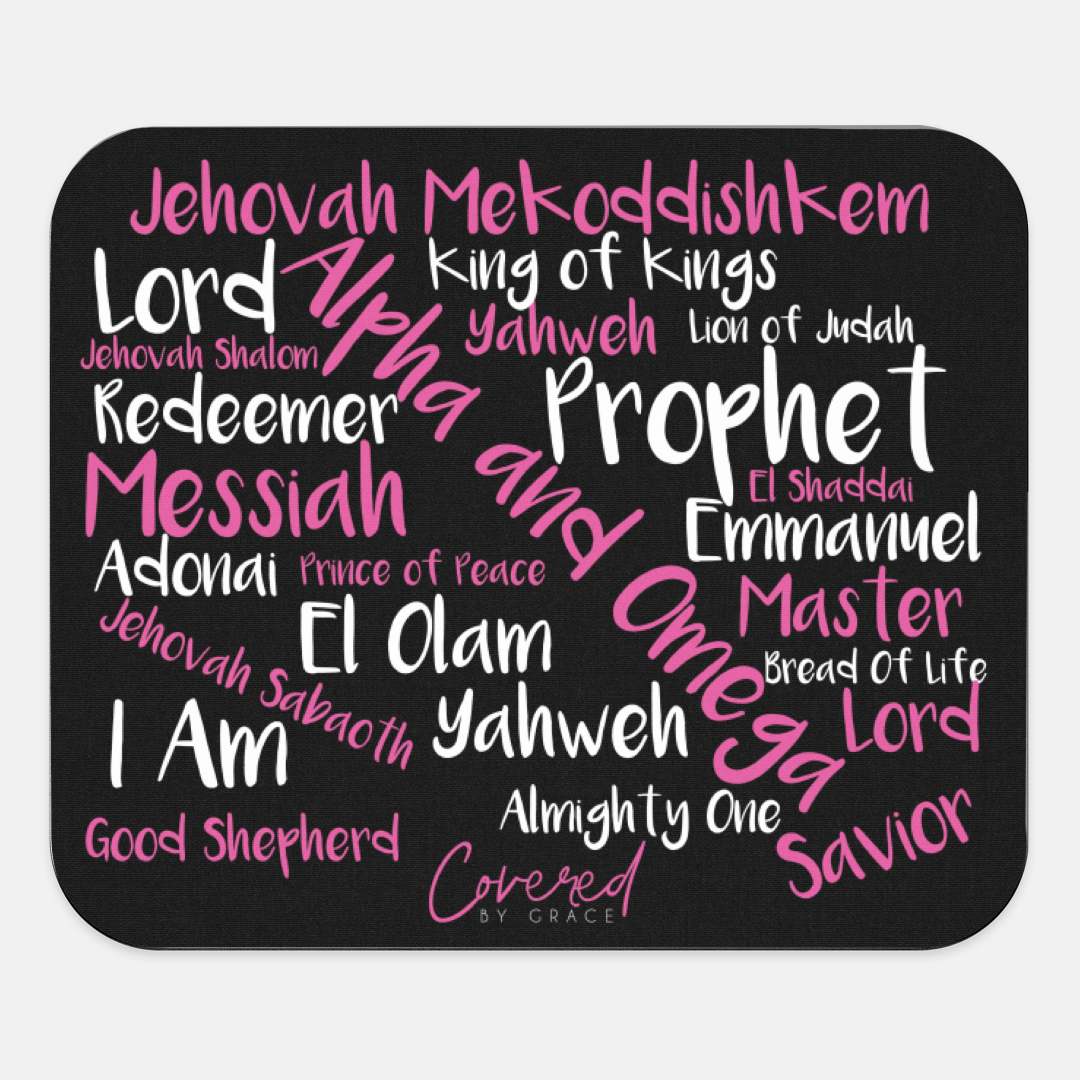 Jehovah Mekoddishkem
Lord
King of Kings
Alpha and Omega
Yahweh
Lion of Judah
Jehovah Shalom
Redeemer
Prophet
Messiah
El Shaddai
Emmanuel
Adonai
Prince of Peace
Master
El Olam
Jehovah Sabaoth
Bread Of Life
I Am
Yahweh
Lord
Almighty One
Good Shepherd
Savior
Covered
BY GRACE